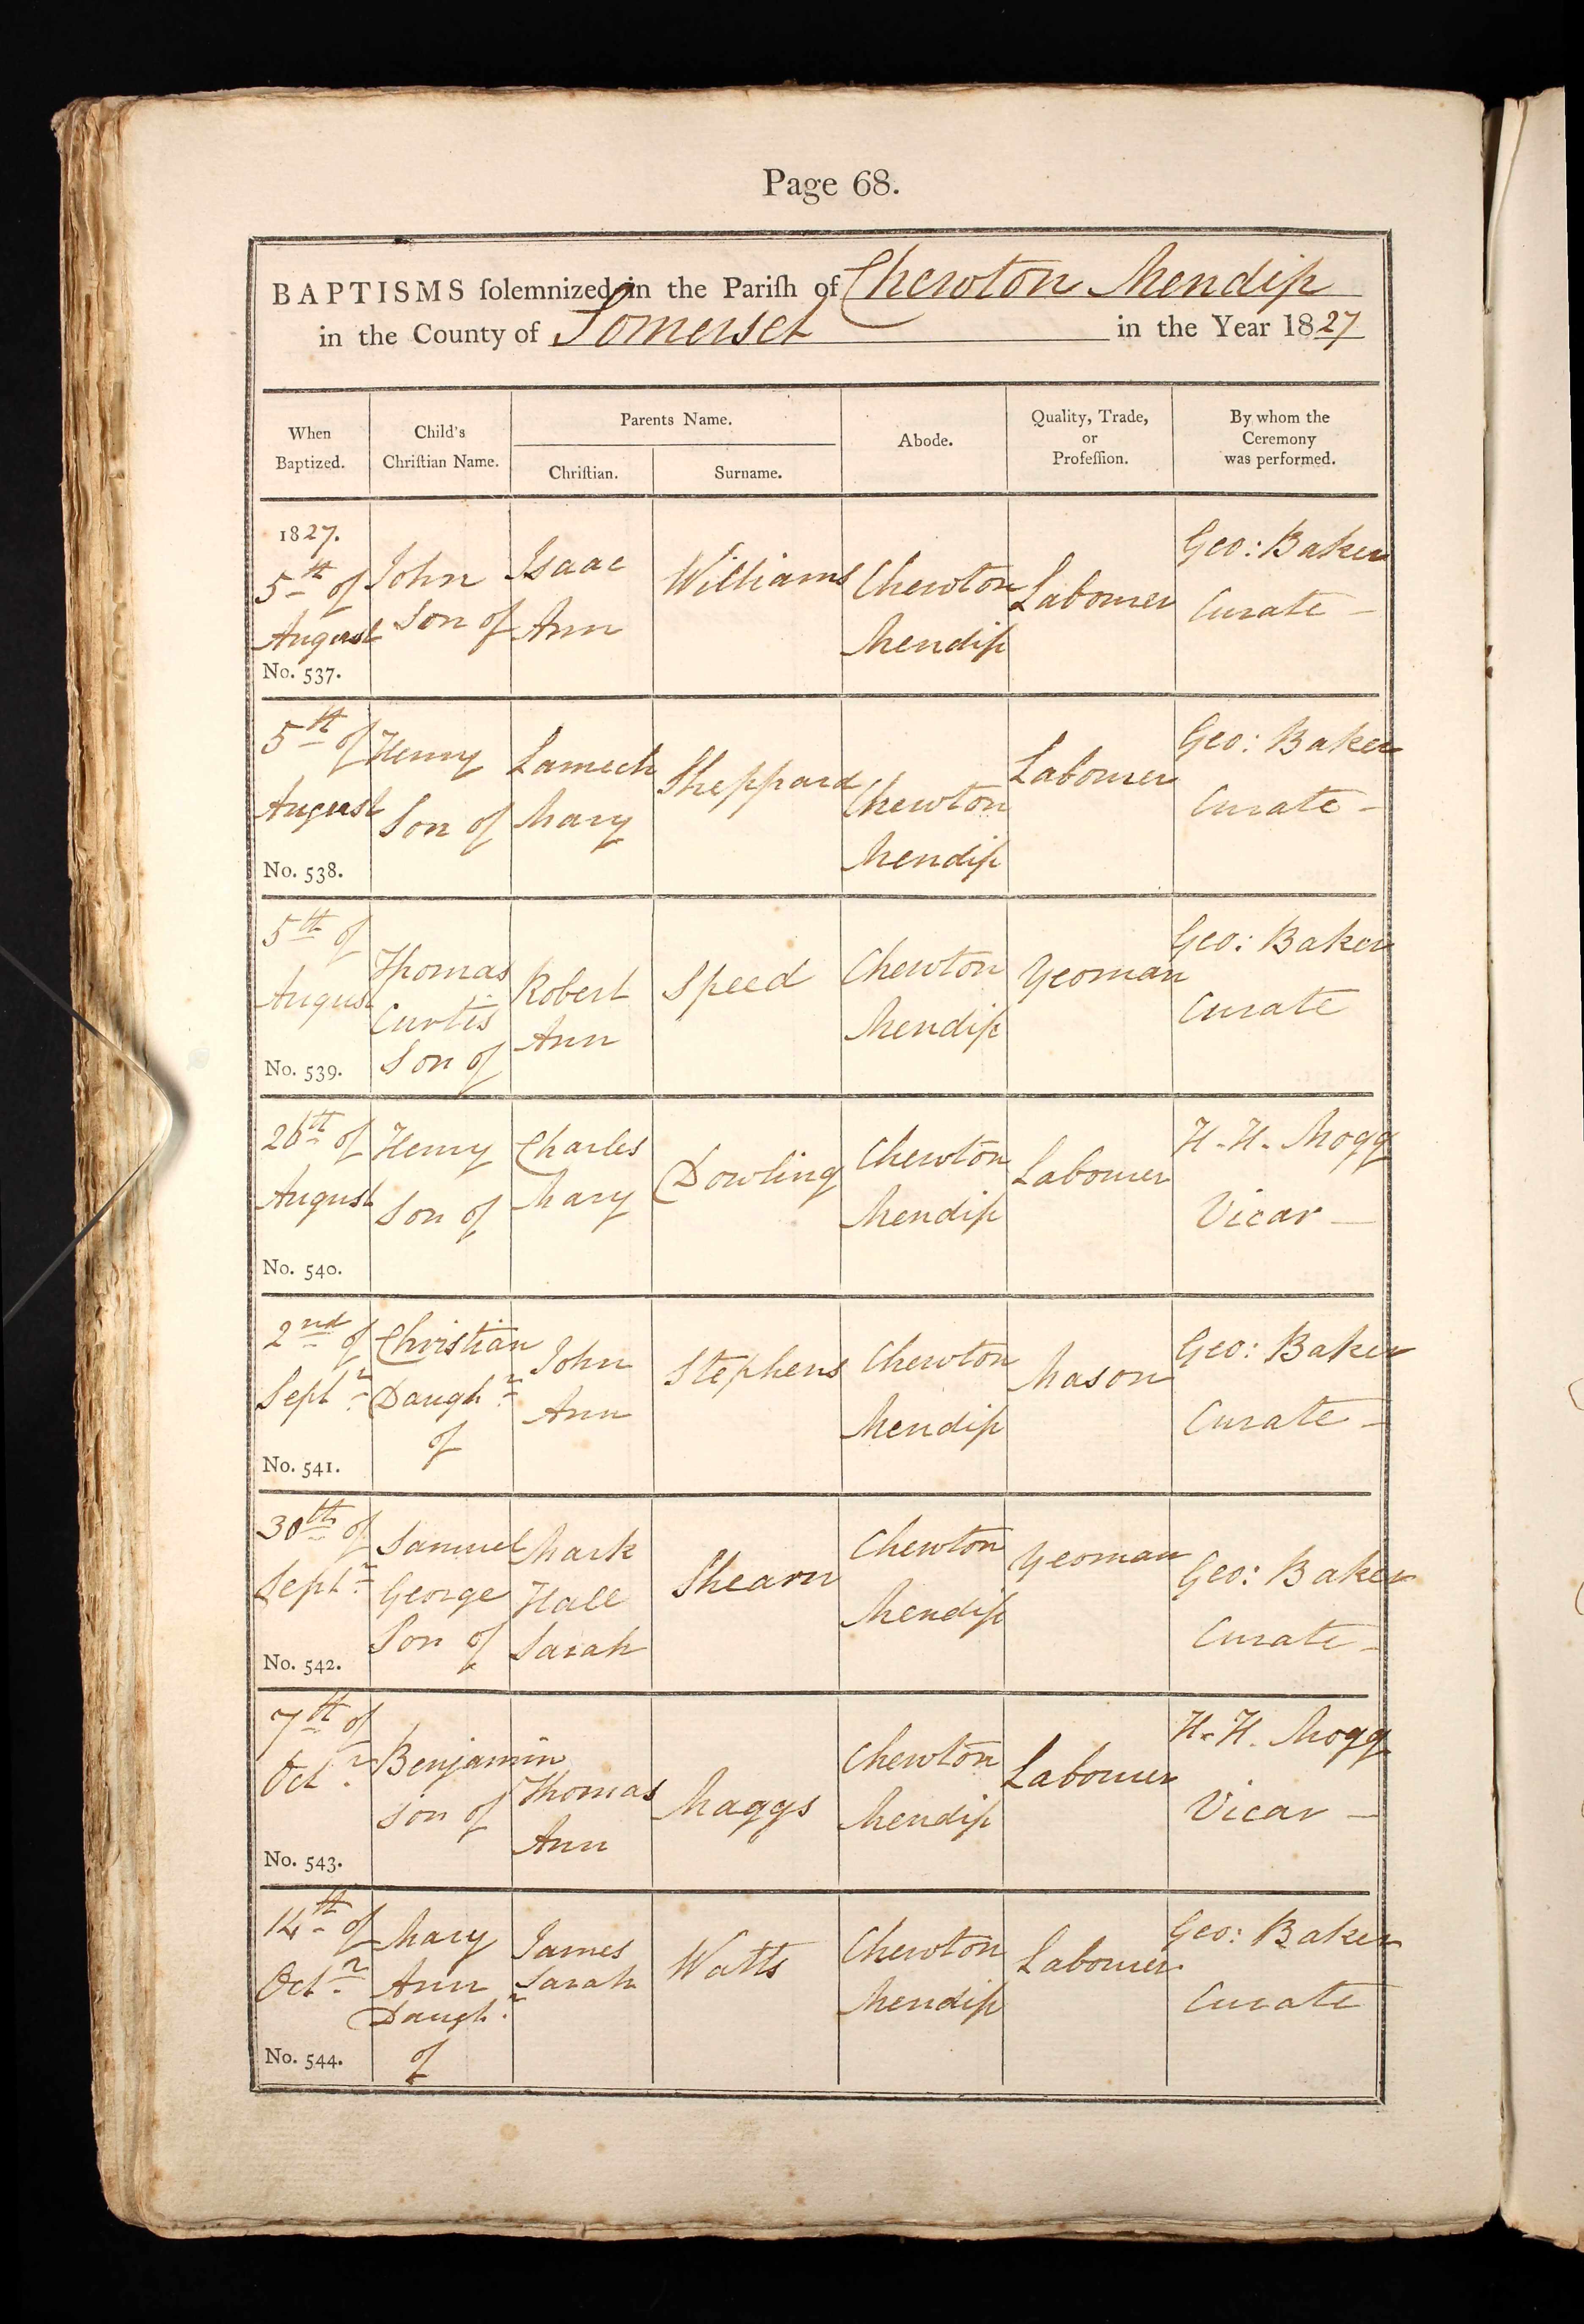 Page 68.
BAPTISMS ſolemnized in the Pariſh of Chewton Mendip
in the County of Somerset in the Year 1827
When
Baptized.
Child's
Chriſtian Name.
Parents Name.
Chriſtian.
Surname.
Abode.
Quality, Trade,
or
Profeſſion.
By whom the
Ceremony
was performed.
1827.
5th of
August
No. 537.
John
Son of
Isaac
Ann
Williams
Chewton
Mendip
Labourer
Geo: Baker
Curate
5th of
August
No. 538.
Henry
Son of
Lamech
Mary
Sheppard
Chewton
Mendip
Labourer
Geo: Baker
Curate
5th of
August
No. 539.
Thomas
Curtis
Son of
Robert
Ann
Speed
Chewton
Mendip
Yeoman
Geo: Baker
Curate
26th of
August
No. 540.
Henry
Son of
Charles
Mary
Dowling
Chewton
Mendip
Labourer
H. H. Mogg
Vicar
2nd of
Septr.
No. 541.
Christian
Daughr.
of
John
Ann
Stephens
Chewton
Mendip
Mason
Geo: Baker
Curate
30th of
Septr.
No. 542.
Samuel
George
Son of
Mark
Hall
Sarah
Shearn
Chewton
Mendip
Yeoman
Geo: Baker
Curate
7th of
Octr.
No. 543.
Benjamin
Son of
Thomas
Ann
Maggs
Chewton
Mendip
Labourer
H. H. Mogg
Vicar
14th of
Octr.
No. 544.
Mary
Ann
Daughr.
of
James
Sarah
Watts
Chewton
Mendip
Labourer
Geo: Baker
Curate